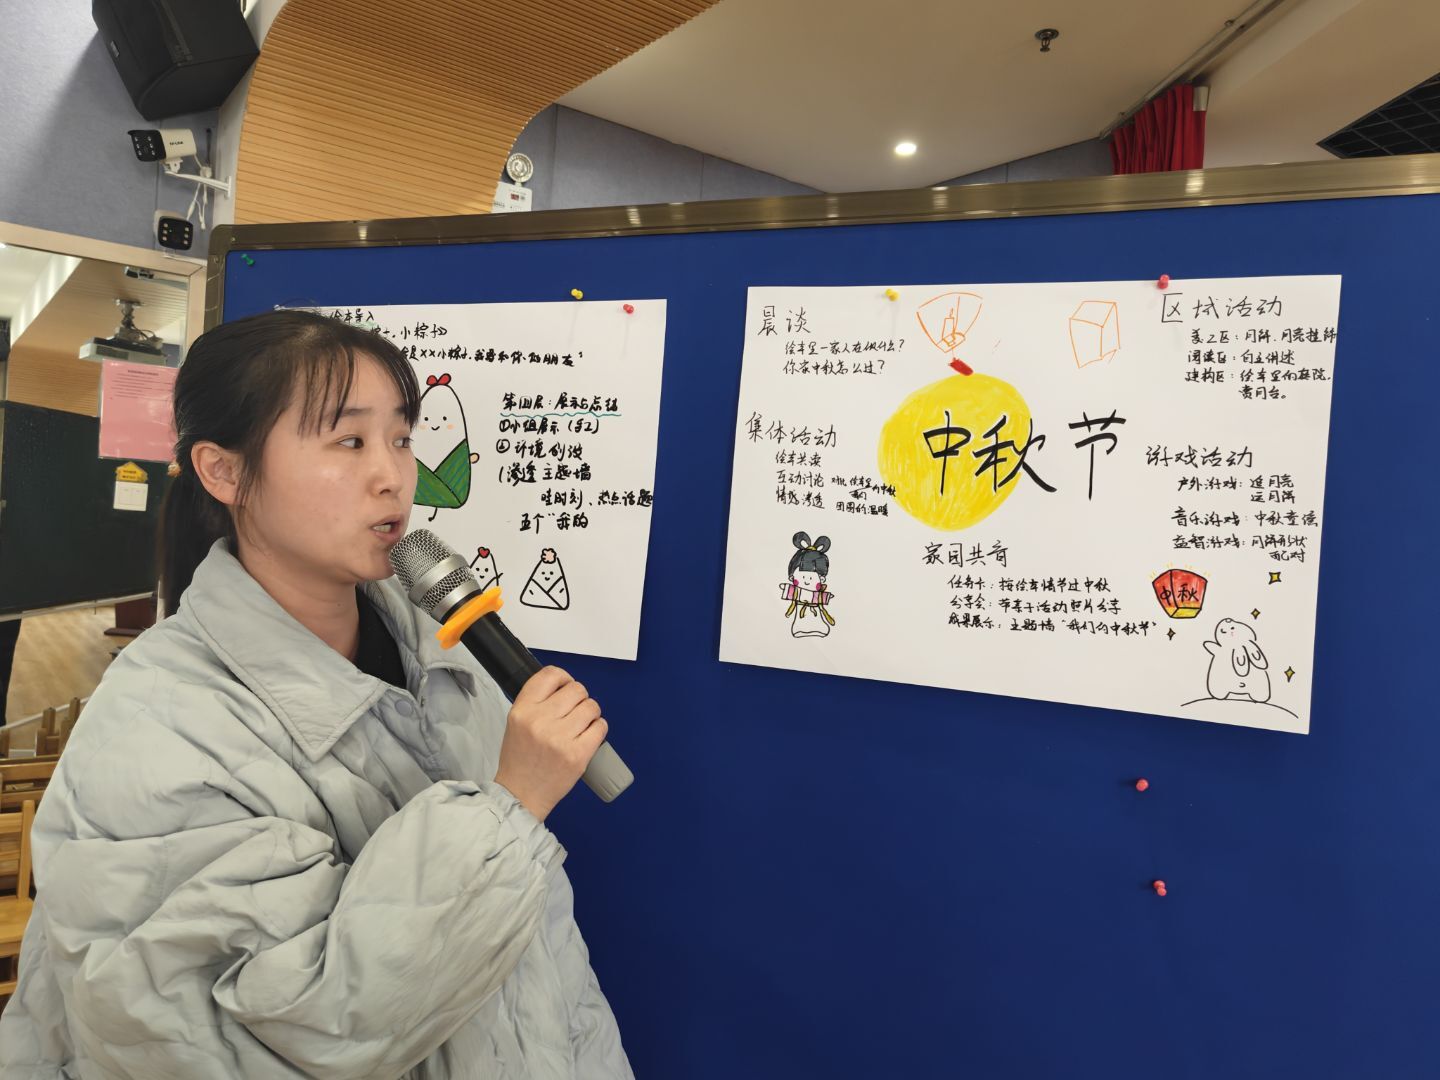 绘本导入
小粽子
是××小粽子,我要和你做朋友"
第四层:展示与总结
①小组展示(手工)
②环境创设
渗透主题墙
哇时刻、热点话题
五个"我的
晨谈
绘本里一家人在做什么?
你家中秋怎么过?
集体活动
绘本共读
互动讨论 对比绘本里的中秋
我们
情感渗透 团圆的温暖
中秋节
区域活动
美工区:月饼、月亮挂饰
阅读区:自主讲述
建构区:绘本里的庭院、
赏月台。
游戏活动
户外游戏:追月亮
运月饼
音乐游戏:中秋童谣
益智游戏:月饼形状
配对
家园共育
任务卡:按绘本情节过中秋
分享会:带亲子活动照片分享
成果展示:主题墙"我们的中秋节"
中秋